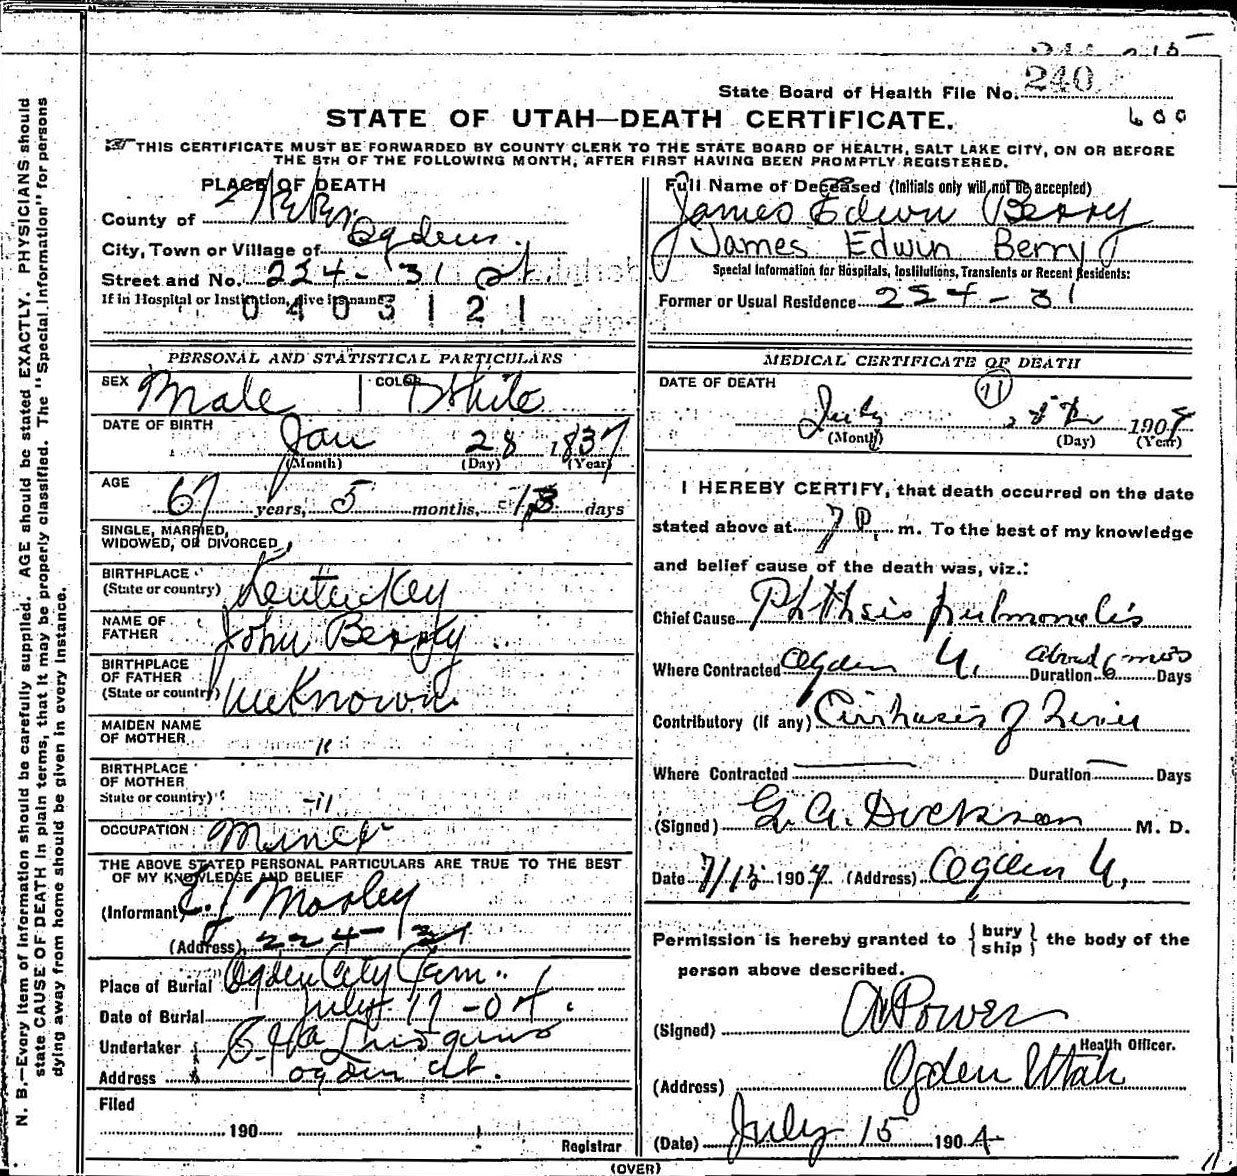 240
State Board of Health File No.
STATE OF UTAH—DEATH CERTIFICATE.
600
THIS CERTIFICATE MUST BE FORWARDED BY COUNTY CLERK TO THE STATE BOARD OF HEALTH, SALT LAKE CITY, ON OR BEFORE
THE 5TH OF THE FOLLOWING MONTH, AFTER FIRST HAVING BEEN PROMPTLY REGISTERED.
PLACE OF DEATH
County of Weber
City, Town or Village of Ogden
Street and No. 224 - 31 St
If in Hospital or Institution, give its name
0403121
Full Name of Deceased (Initials only will not be accepted)
James Edwin Berry
James Edwin Berry
Special Information for Hospitals, Institutions, Transients or Recent Residents:
Former or Usual Residence 224 - 31
PERSONAL AND STATISTICAL PARTICULARS
SEX Male COLOR White
DATE OF BIRTH Jan 28 1837
(Month) (Day) (Year)
AGE 67 years, 5 months, days
SINGLE, MARRIED,
WIDOWED, OR DIVORCED
BIRTHPLACE
(State or country) Kentuckey
NAME OF
FATHER John Berry
BIRTHPLACE
OF FATHER
(State or country) unKnown
MAIDEN NAME
OF MOTHER "
BIRTHPLACE
OF MOTHER
State or country) "
OCCUPATION Miner
THE ABOVE STATED PERSONAL PARTICULARS ARE TRUE TO THE BEST
OF MY KNOWLEDGE AND BELIEF
(Informant) Mosley
(Address) 224 - 31
Place of Burial Ogden City Cem
Date of Burial July 17 - 04
Undertaker
Address Ogden Ut.
Filed
190
Registrar
MEDICAL CERTIFICATE OF DEATH
11
DATE OF DEATH
July 1904
(Month) (Day) (Year)
I HEREBY CERTIFY, that death occurred on the date
stated above at 7 P. m. To the best of my knowledge
and belief cause of the death was, viz.:
Chief Cause Phthsis pulmonalis
Where Contracted Ogden U. Duration about 6 mos Days
Contributory (if any) Cirrhosis of Liver
Where Contracted Duration Days
(Signed) G. A. Dickson M. D.
Date 7/15 1904 (Address) Ogden U.
Permission is hereby granted to { bury ship } the body of the
person above described.
(Signed) Power
Health Officer.
(Address) Ogden Utah
(Date) July 15 1904
(OVER)
N. B.—Every item of information should be carefully supplied. AGE should be stated EXACTLY. PHYSICIANS should
state CAUSE OF DEATH in plain terms, that it may be properly classified. The "Special Information" for persons
dying away from home should be given in every instance.